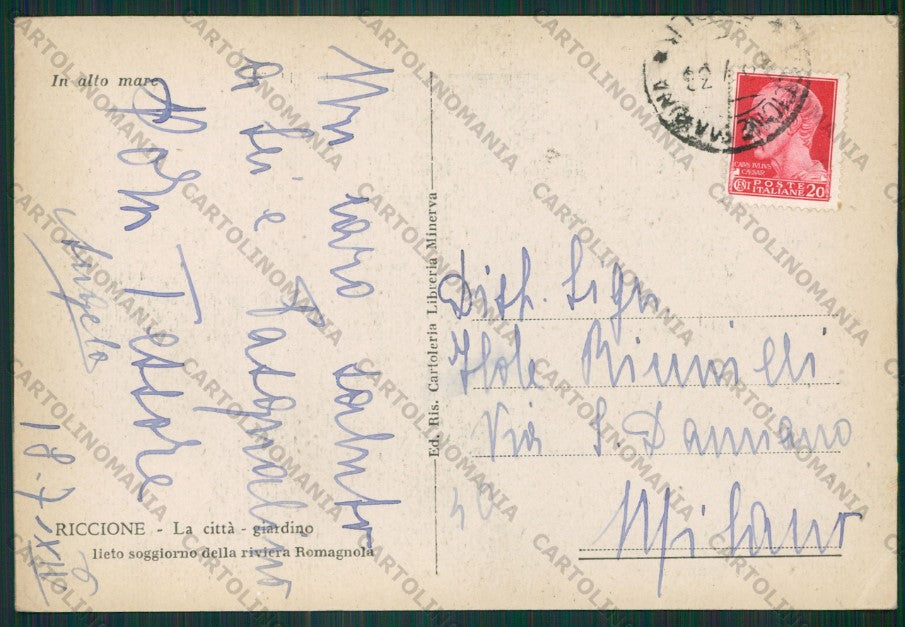 In alto mare
Un caro saluto
a Lei e Pasqualino
Dora Tessore
Angela
18-7-XVII
RICCIONE - La città - giardino
lieto soggiorno della riviera Romagnola
Ed. Ris. Cartoleria Libreria Minerva
CAIVS IVLIVS
CAESAR
POSTE
ITALIANE 20
Dist. Sigr
Via S. Damiano
40
Milano
CARTOLINOMANIA